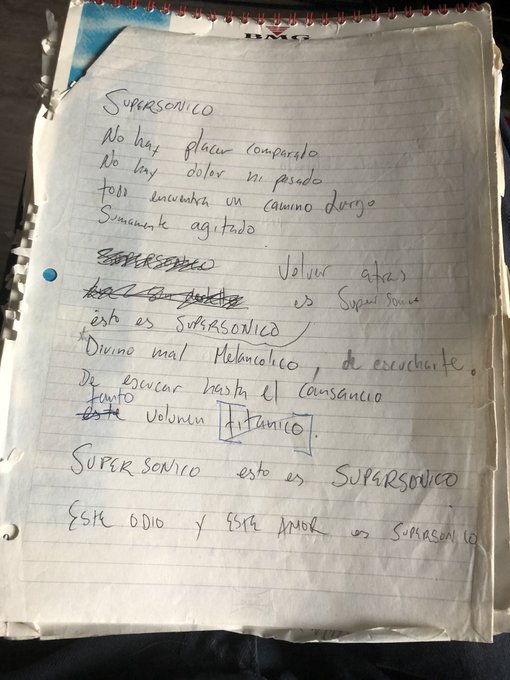 BMG
SUPERSONICO
No hay placer comparado
No hay dolor ni pasado
todo encuentra un camino Largo
Sumamente agitado
SUPERSONICO Volver atras
es Super Sonico
esto es SUPERSONICO
Divino mal Melancolico, de escucharte.
De escucar hasta el cansancio
tanto
este volumen titanico.
SUPERSONICO esto es SUPERSONICO
ESTE ODIO Y ESTE AMOR es SUPERSONICO